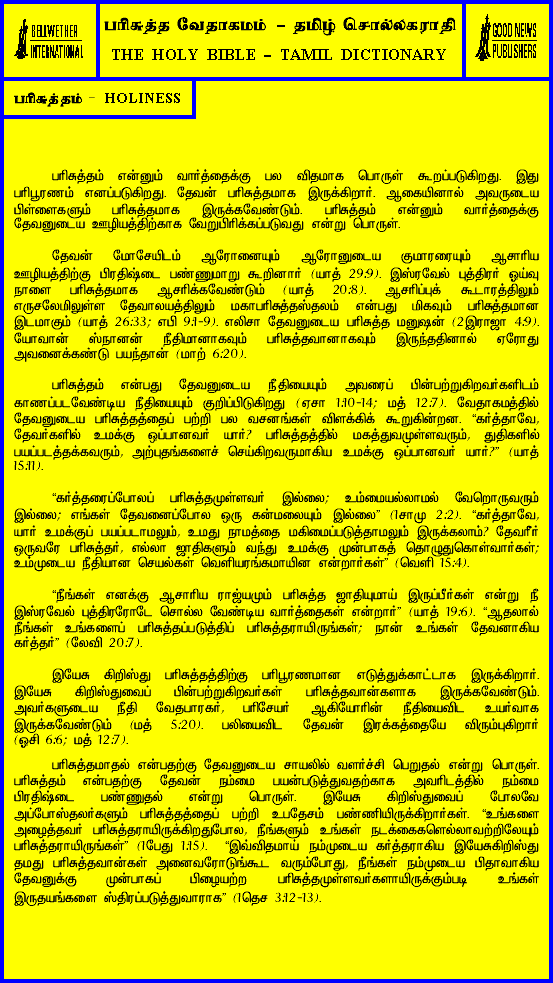 BELLWETHER
INTERNATIONAL
பரிசுத்த வேதாகமம் – தமிழ் சொல்லகராதி
THE HOLY BIBLE – TAMIL DICTIONARY
GOOD NEWS
PUBLISHERS
பரிசுத்தம் – HOLINESS
பரிசுத்தம் என்னும் வார்த்தைக்கு பல விதமாக பொருள் கூறப்படுகிறது. இது
பரிபூரணம் எனப்படுகிறது. தேவன் பரிசுத்தமாக இருக்கிறார். ஆகையினால் அவருடைய
பிள்ளைகளும் பரிசுத்தமாக இருக்கவேண்டும். பரிசுத்தம் என்னும் வார்த்தைக்கு
தேவனுடைய ஊழியத்திற்காக வேறுபிரிக்கப்படுவது என்று பொருள்.
தேவன் மோசேயிடம் ஆரோனையும் ஆரோனுடைய குமாரரையும் ஆசாரிய
ஊழியத்திற்கு பிரதிஷ்டை பண்ணுமாறு கூறினார் (யாத் 29:9). இஸ்ரவேல் புத்திரர் ஓய்வு
நாளை பரிசுத்தமாக ஆசரிக்கவேண்டும் (யாத் 20:8). ஆசரிப்புக் கூடாரத்திலும்
எருசலேமிலுள்ள தேவாலயத்திலும் மகாபரிசுத்தஸ்தலம் என்பது மிகவும் பரிசுத்தமான
இடமாகும் (யாத் 26:33; எபி 9:1-9). எலிசா தேவனுடைய பரிசுத்த மனுஷன் (2இராஜா 4:9).
யோவான் ஸ்நானன் நீதிமானாகவும் பரிசுத்தவானாகவும் இருந்ததினால் ஏரோது
அவனைக்கண்டு பயந்தான் (மாற் 6:20).
பரிசுத்தம் என்பது தேவனுடைய நீதியையும் அவரைப் பின்பற்றுகிறவர்களிடம்
காணப்படவேண்டிய நீதியையும் குறிப்பிடுகிறது (ஏசா 1:10-14; மத் 12:7). வேதாகமத்தில்
தேவனுடைய பரிசுத்தத்தைப் பற்றி பல வசனங்கள் விளக்கிக் கூறுகின்றன. “கர்த்தாவே,
தேவர்களில் உமக்கு ஒப்பானவர் யார்? பரிசுத்தத்தில் மகத்துவமுள்ளவரும், துதிகளில்
பயப்படத்தக்கவரும், அற்புதங்களைச் செய்கிறவருமாகிய உமக்கு ஒப்பானவர் யார்?” (யாத்
15:11).
“கர்த்தரைப்போலப் பரிசுத்தமுள்ளவர் இல்லை; உம்மையல்லாமல் வேறொருவரும்
இல்லை; எங்கள் தேவனைப்போல ஒரு கன்மலையும் இல்லை” (1சாமு 2:2). “கர்த்தாவே,
யார் உமக்குப் பயப்படாமலும், உமது நாமத்தை மகிமைப்படுத்தாமலும் இருக்கலாம்? தேவரீர்
ஒருவரே பரிசுத்தர், எல்லா ஜாதிகளும் வந்து உமக்கு முன்பாகத் தொழுதுகொள்வார்கள்;
உம்முடைய நீதியான செயல்கள் வெளியரங்கமாயின என்றார்கள்” (வெளி 15:4).
“நீங்கள் எனக்கு ஆசாரிய ராஜ்யமும் பரிசுத்த ஜாதியுமாய் இருப்பீர்கள் என்று நீ
இஸ்ரவேல் புத்திரரோடே சொல்ல வேண்டிய வார்த்தைகள் என்றார்” (யாத் 19:6). “ஆதலால்
நீங்கள் உங்களைப் பரிசுத்தப்படுத்திப் பரிசுத்தராயிருங்கள்; நான் உங்கள் தேவனாகிய
கர்த்தர்” (லேவி 20:7).
இயேசு கிறிஸ்து பரிசுத்தத்திற்கு பரிபூரணமான எடுத்துக்காட்டாக இருக்கிறார்.
இயேசு கிறிஸ்துவைப் பின்பற்றுகிறவர்கள் பரிசுத்தவான்களாக இருக்கவேண்டும்.
அவர்களுடைய நீதி வேதபாரகர், பரிசேயர் ஆகியோரின் நீதியைவிட உயர்வாக
இருக்கவேண்டும் (மத் 5:20). பலியைவிட தேவன் இரக்கத்தையே விரும்புகிறார்
(ஓசி 6:6; மத் 12:7).
பரிசுத்தமாதல் என்பதற்கு தேவனுடைய சாயலில் வளர்ச்சி பெறுதல் என்று பொருள்.
பரிசுத்தம் என்பதற்கு தேவன் நம்மை பயன்படுத்துவதற்காக அவரிடத்தில் நம்மை
பிரதிஷ்டை பண்ணுதல் என்று பொருள். இயேசு கிறிஸ்துவைப் போலவே
அப்போஸ்தலர்களும் பரிசுத்தத்தைப் பற்றி உபதேசம் பண்ணியிருக்கிறார்கள். “உங்களை
அழைத்தவர் பரிசுத்தராயிருக்கிறதுபோல, நீங்களும் உங்கள் நடக்கைகளெல்லாவற்றிலேயும்
பரிசுத்தராயிருங்கள்” (1பேது 1:15). “இவ்விதமாய் நம்முடைய கர்த்தராகிய இயேசுகிறிஸ்து
தமது பரிசுத்தவான்கள் அனைவரோடுங்கூட வரும்போது, நீங்கள் நம்முடைய பிதாவாகிய
தேவனுக்கு முன்பாகப் பிழையற்ற பரிசுத்தமுள்ளவர்களாயிருக்கும்படி உங்கள்
இருதயங்களை ஸ்திரப்படுத்துவாராக” (1தெச 3:12-13).